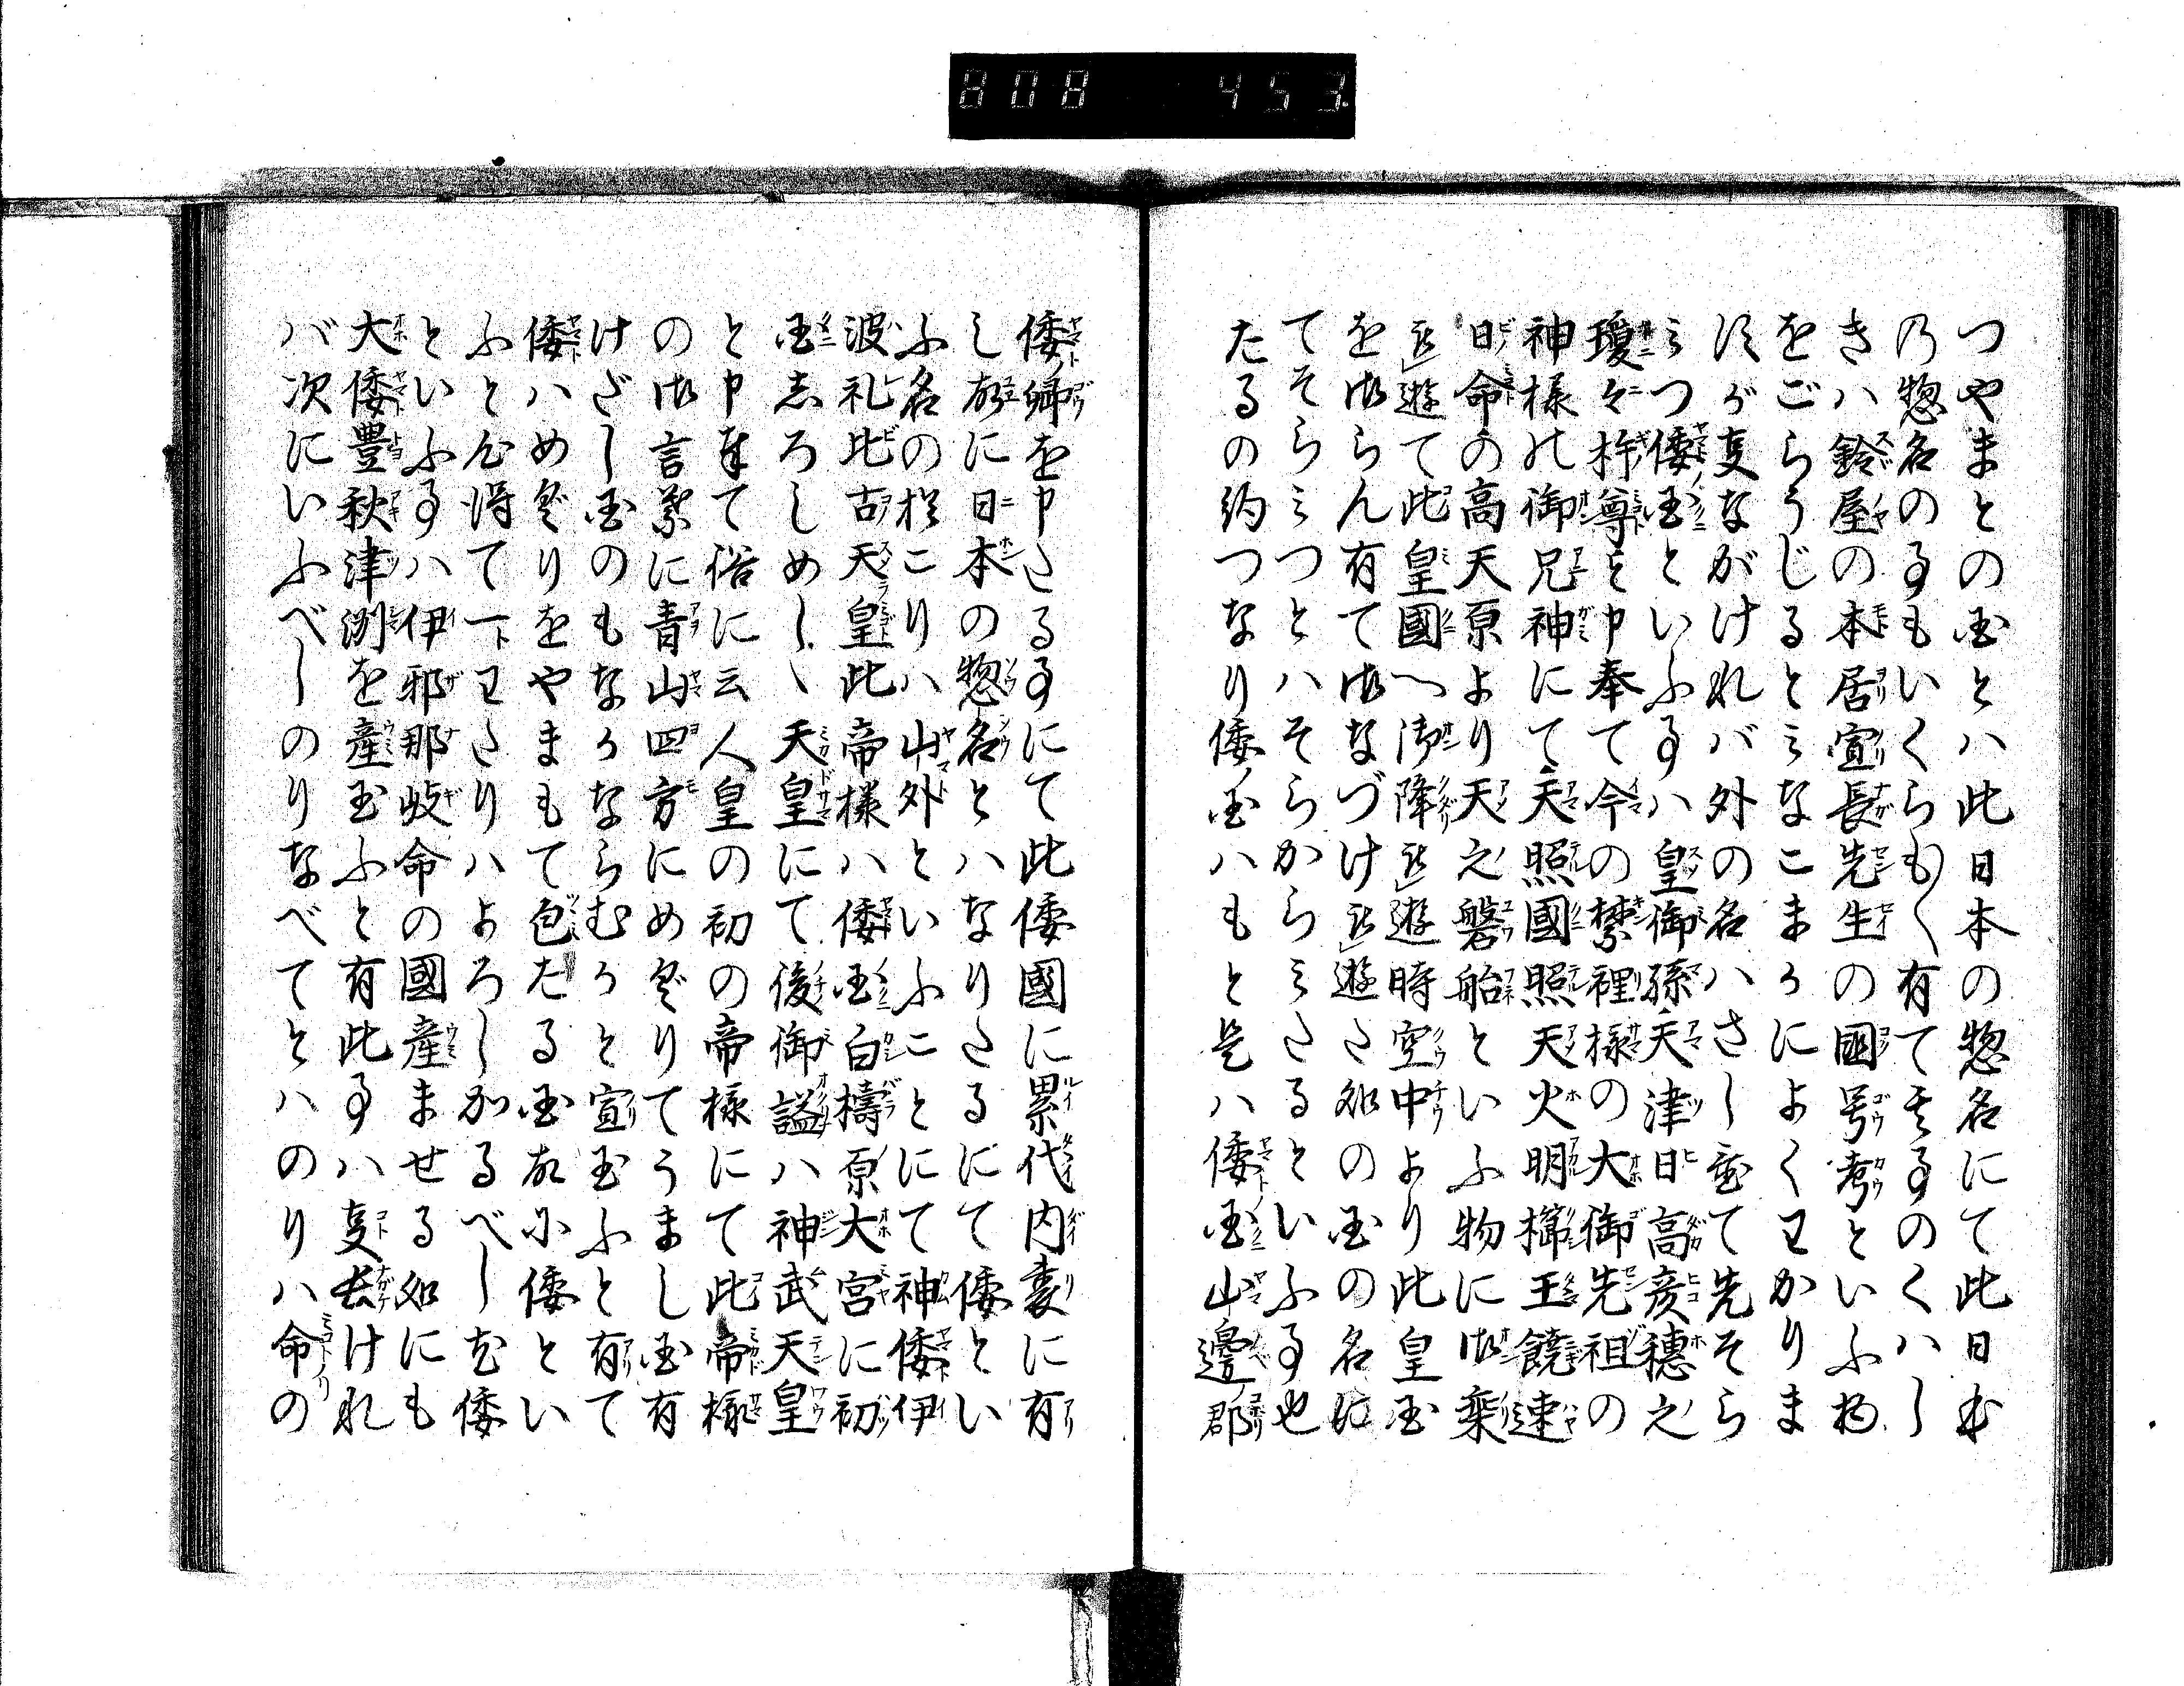 808 453
つやまとの国とハ此日本の惣名にて此日本
乃惣名の事もいくらも〱有て其事のくハし
きハ鈴屋の本居宣長先生の國号考といふ物
をごらうじるとミなこまかによくワかりま
すが長ながけれバ外の名ハさし置て先そら
ミつ倭国といふ事ハ皇御孫天津日高彦穂之
瓊々杵尊と申奉て今の禁裡様の大御先祖の
神様の御兄神にて天照國照天火明櫛玉饒速
日命の高天原より天之磐船といふ物に御乗
遊て此皇國へ御降遊時空中より此皇国
を御らん有て御なづけ遊さ処の国の名は
てそらミつとハそらからミさるといふ事也
たるの約つなり倭国ハもと是ハ倭国山邊郡
倭郷を申さる事にて此倭國に累代内裏に有
し故に日本の惣名とハなりさるにて倭とい
ふ名の於こりハ山外といふことにて神倭伊
波礼比古天皇此帝様ハ倭国白檮原大宮に初
国志ろしめしゝ天皇にて後御謚ハ神武天皇
と申奉て俗に云人皇の初の帝様にて此帝様
の御言葉に青山四方にめぐりてうまし国有
けざし国のもなかならむかと宣玉ふと有て
倭ハめぐりをやまもて包たる国故小倭とい
ふと心得て一トワさりハよろしかるべしむ倭
といふ事ハ伊邪那岐命の國産ませる処にも
大倭豊秋津洲を産玉ふと有此事ハ長けれ
バ次にいふべしのりなべてとハのりハ命の